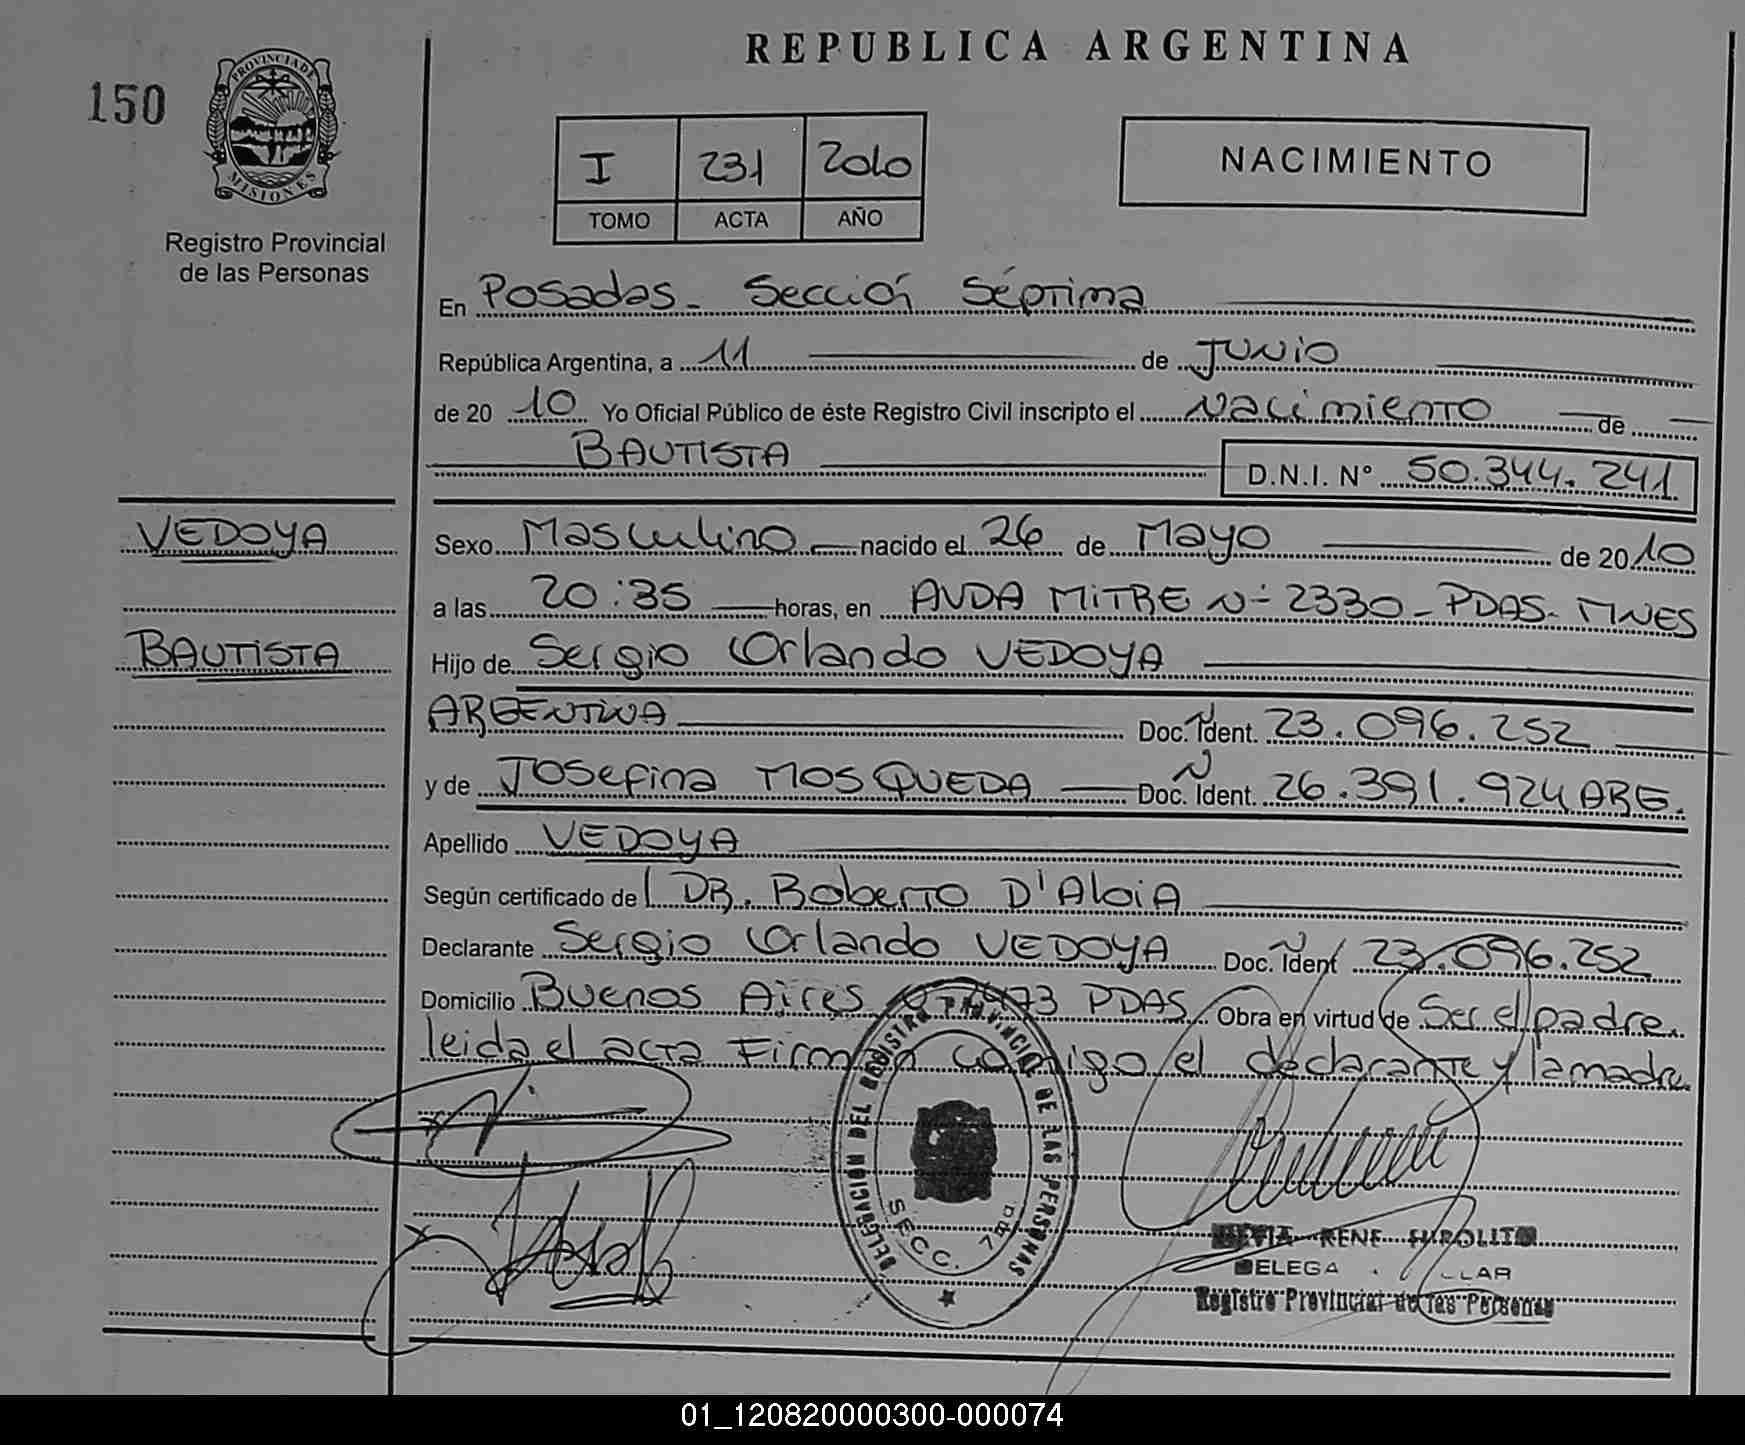 REPUBLICA ARGENTINA
150
PROVINCIA DE
MISIONES
Registro Provincial
de las Personas
I 231 2010
TOMO ACTA AÑO
NACIMIENTO
En Posadas - Sección Séptima
República Argentina, a 11 de Junio
de 20 10 Yo Oficial Público de éste Registro Civil inscripto el Nacimiento de
BAUTISTA D.N.I. N° 50.344.241
VEDOYA
BAUTISTA
Sexo Masculino nacido el 26 de Mayo de 2010
a las 20:35 horas, en AVDA MITRE N- 2330 - PDAS - MNES
Hijo de Sergio Orlando VEDOYA
ARGENTINA Doc. Ident. N 23.096.252
y de Josefina MOSQUEDA Doc. Ident. N 26.391.924 ARG.
Apellido VEDOYA
Según certificado del DR. Roberto D'AloiA
Declarante Sergio Orlando VEDOYA Doc. Ident N 23.096.252
Domicilio Buenos Aires PDAS Obra en virtud de Ser el padre.
leida el acta Firman conmigo el declarante y la madre.
DELEGACION DEL REGISTRO PROVINCIAL DE LAS PERSONAS
SECC. 7ma
RENE HIPOLITO
Registro Provincial de las Personas
01_120820000300-000074